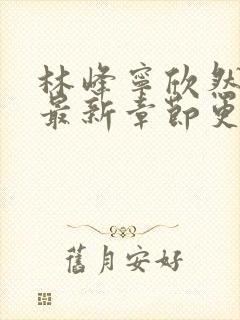 林峰寧欣然
最新章節更
舊月安好